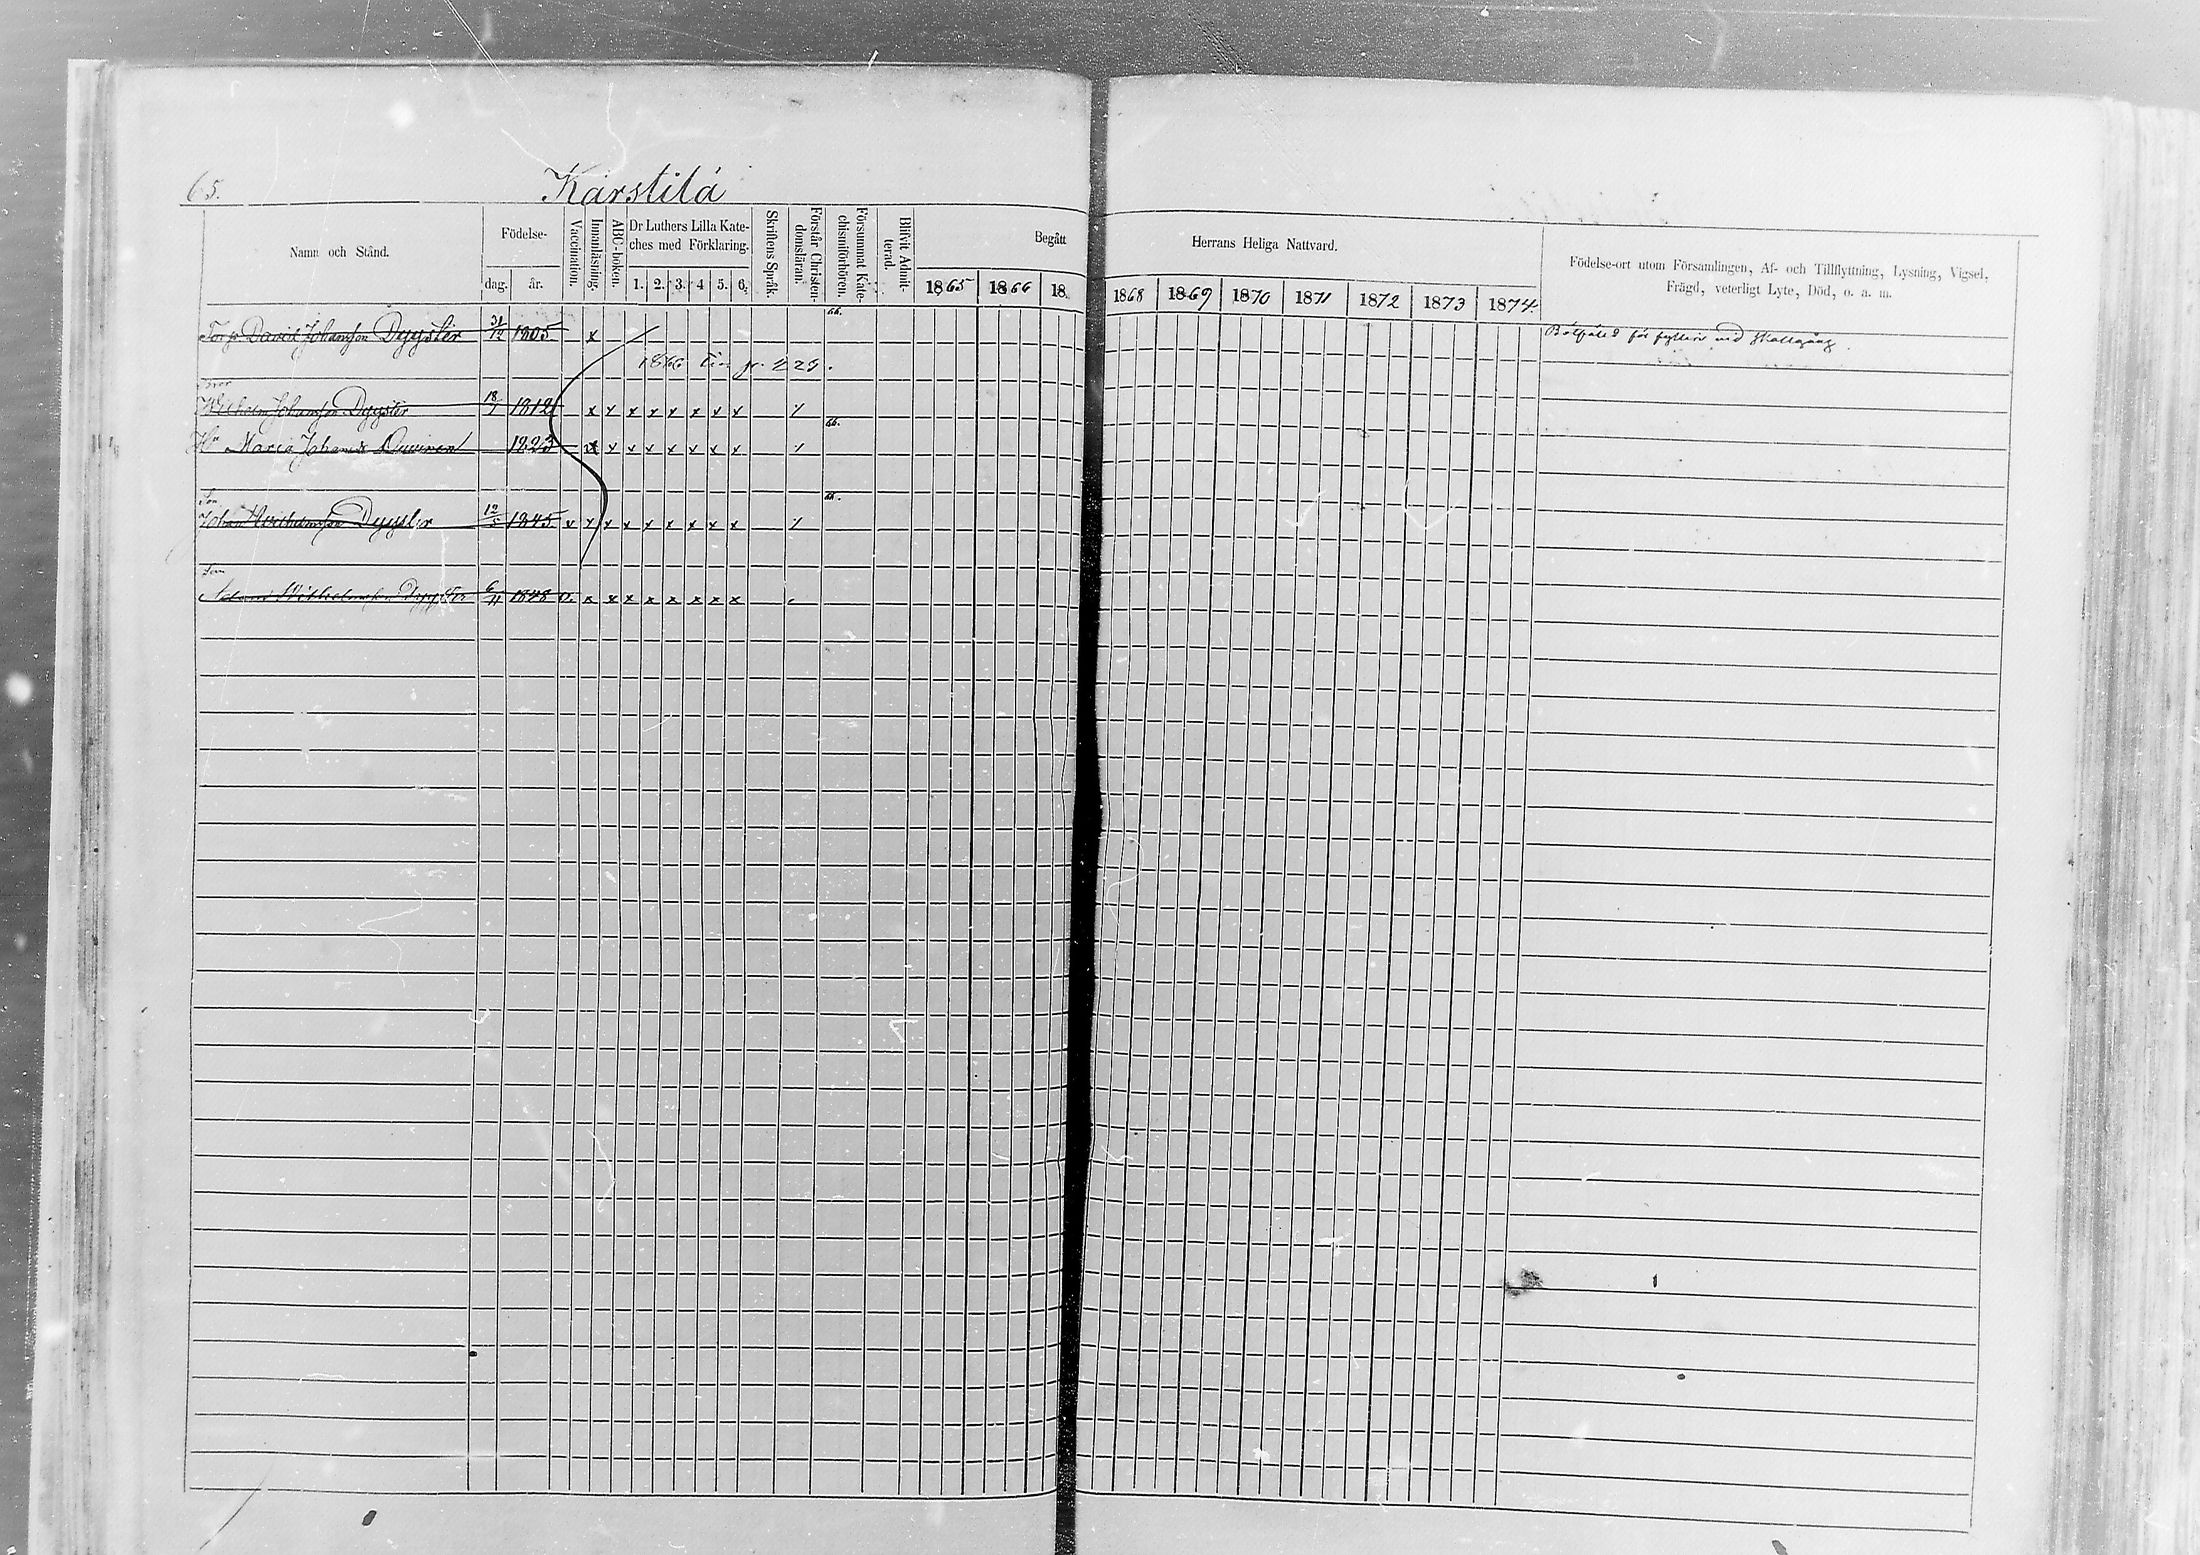 65.
Kärstilä
Namn och Stånd.
Födelse-
dag.
år.
Vaccination.
Innanläsning.
ABC-boken.
Dr Luthers Lilla Kate-
ches med Förklaring.
1. 2. 3. 4 5. 6.
Skriftens Språk.
Förstår Christen-
domsläran.
Försummat Kate-
chismiförhören.
Blifvit Admit-
terad.
Begått
Herrans Heliga Nattvard.
1865 1866 18
1868 1869 1870 1871 1872 1873 1874.
Födelse-ort utom Församlingen, Af- och Tillflyttning, Lysning, Vigsel,
Frägd, veterligt Lyte, Död, o. a. m.
David Johansson Dyyster 31/12 1805 x 66.
Bötfäld för fylleri vid Skallgång.
1866 223.
Bror
Wilhelm Johansson Dyyster 18/1 1812 x x x x x x x x
Hu Maria Johansdr 1823 x x x x x x x x 66.
Son
Johan Wilhelmsson Dyyster 12/5 1845 v x x x x x x x x 66.
Son
Adam Wilhelmsson Dyyster 6/11 1848 v. x x x x x x x x